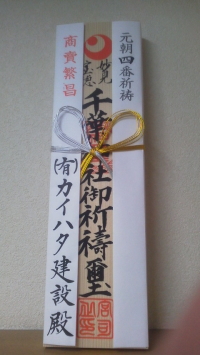 元朝四番祈祷
妙見
千葉神社御祈禱璽
商賣繁昌
(有)カイハタ建設殿